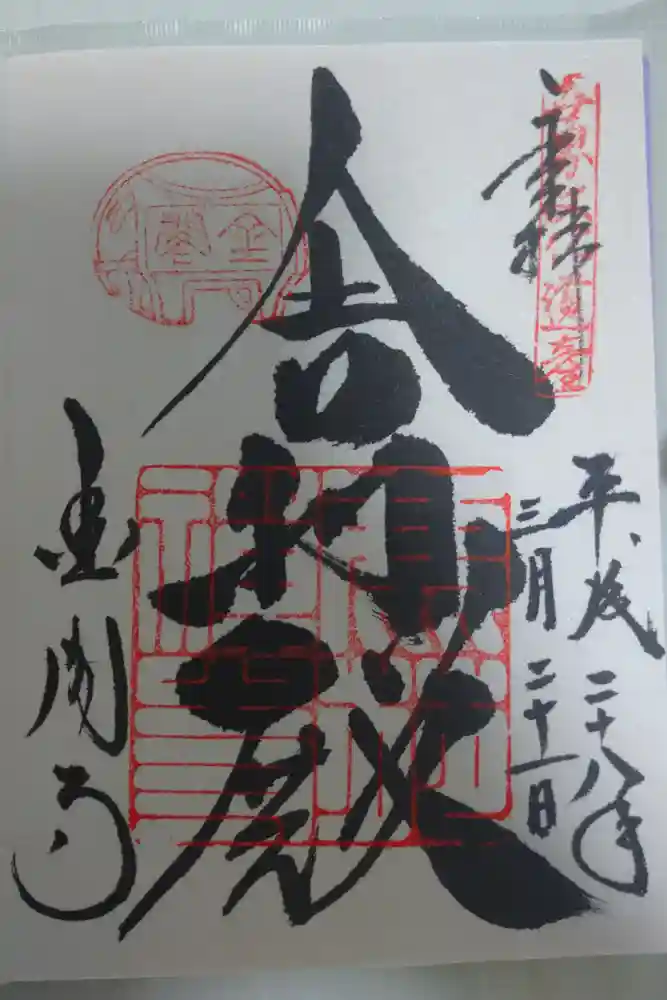 奉拝
平成二十八年
三月二十一日
舎利殿
金閣寺